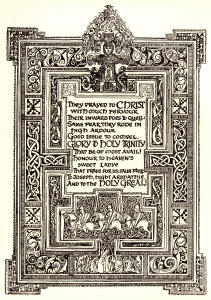 They prayed to Christ
with much fervour
Their inward foes to quell:
Sans fear, they rode in
high ardour
Good issue to compel.
Glory to Holy Trinity
That be of most avail!
Honour to Heaven's
sweet Ladye
That prays for us, sans fayle
To Joseph, hight Arimathie
And to the Holy Greal!